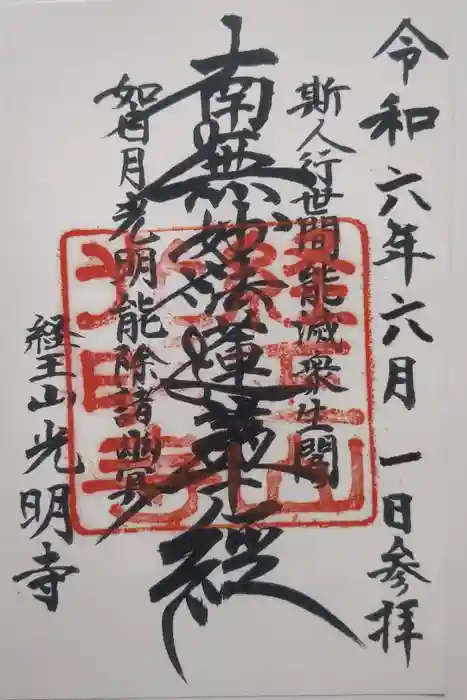 令和六年六月一日参拝
斯人行世間能滅衆生闇
南無妙法蓮華経
如日月光明能除諸幽冥
経王山光明寺